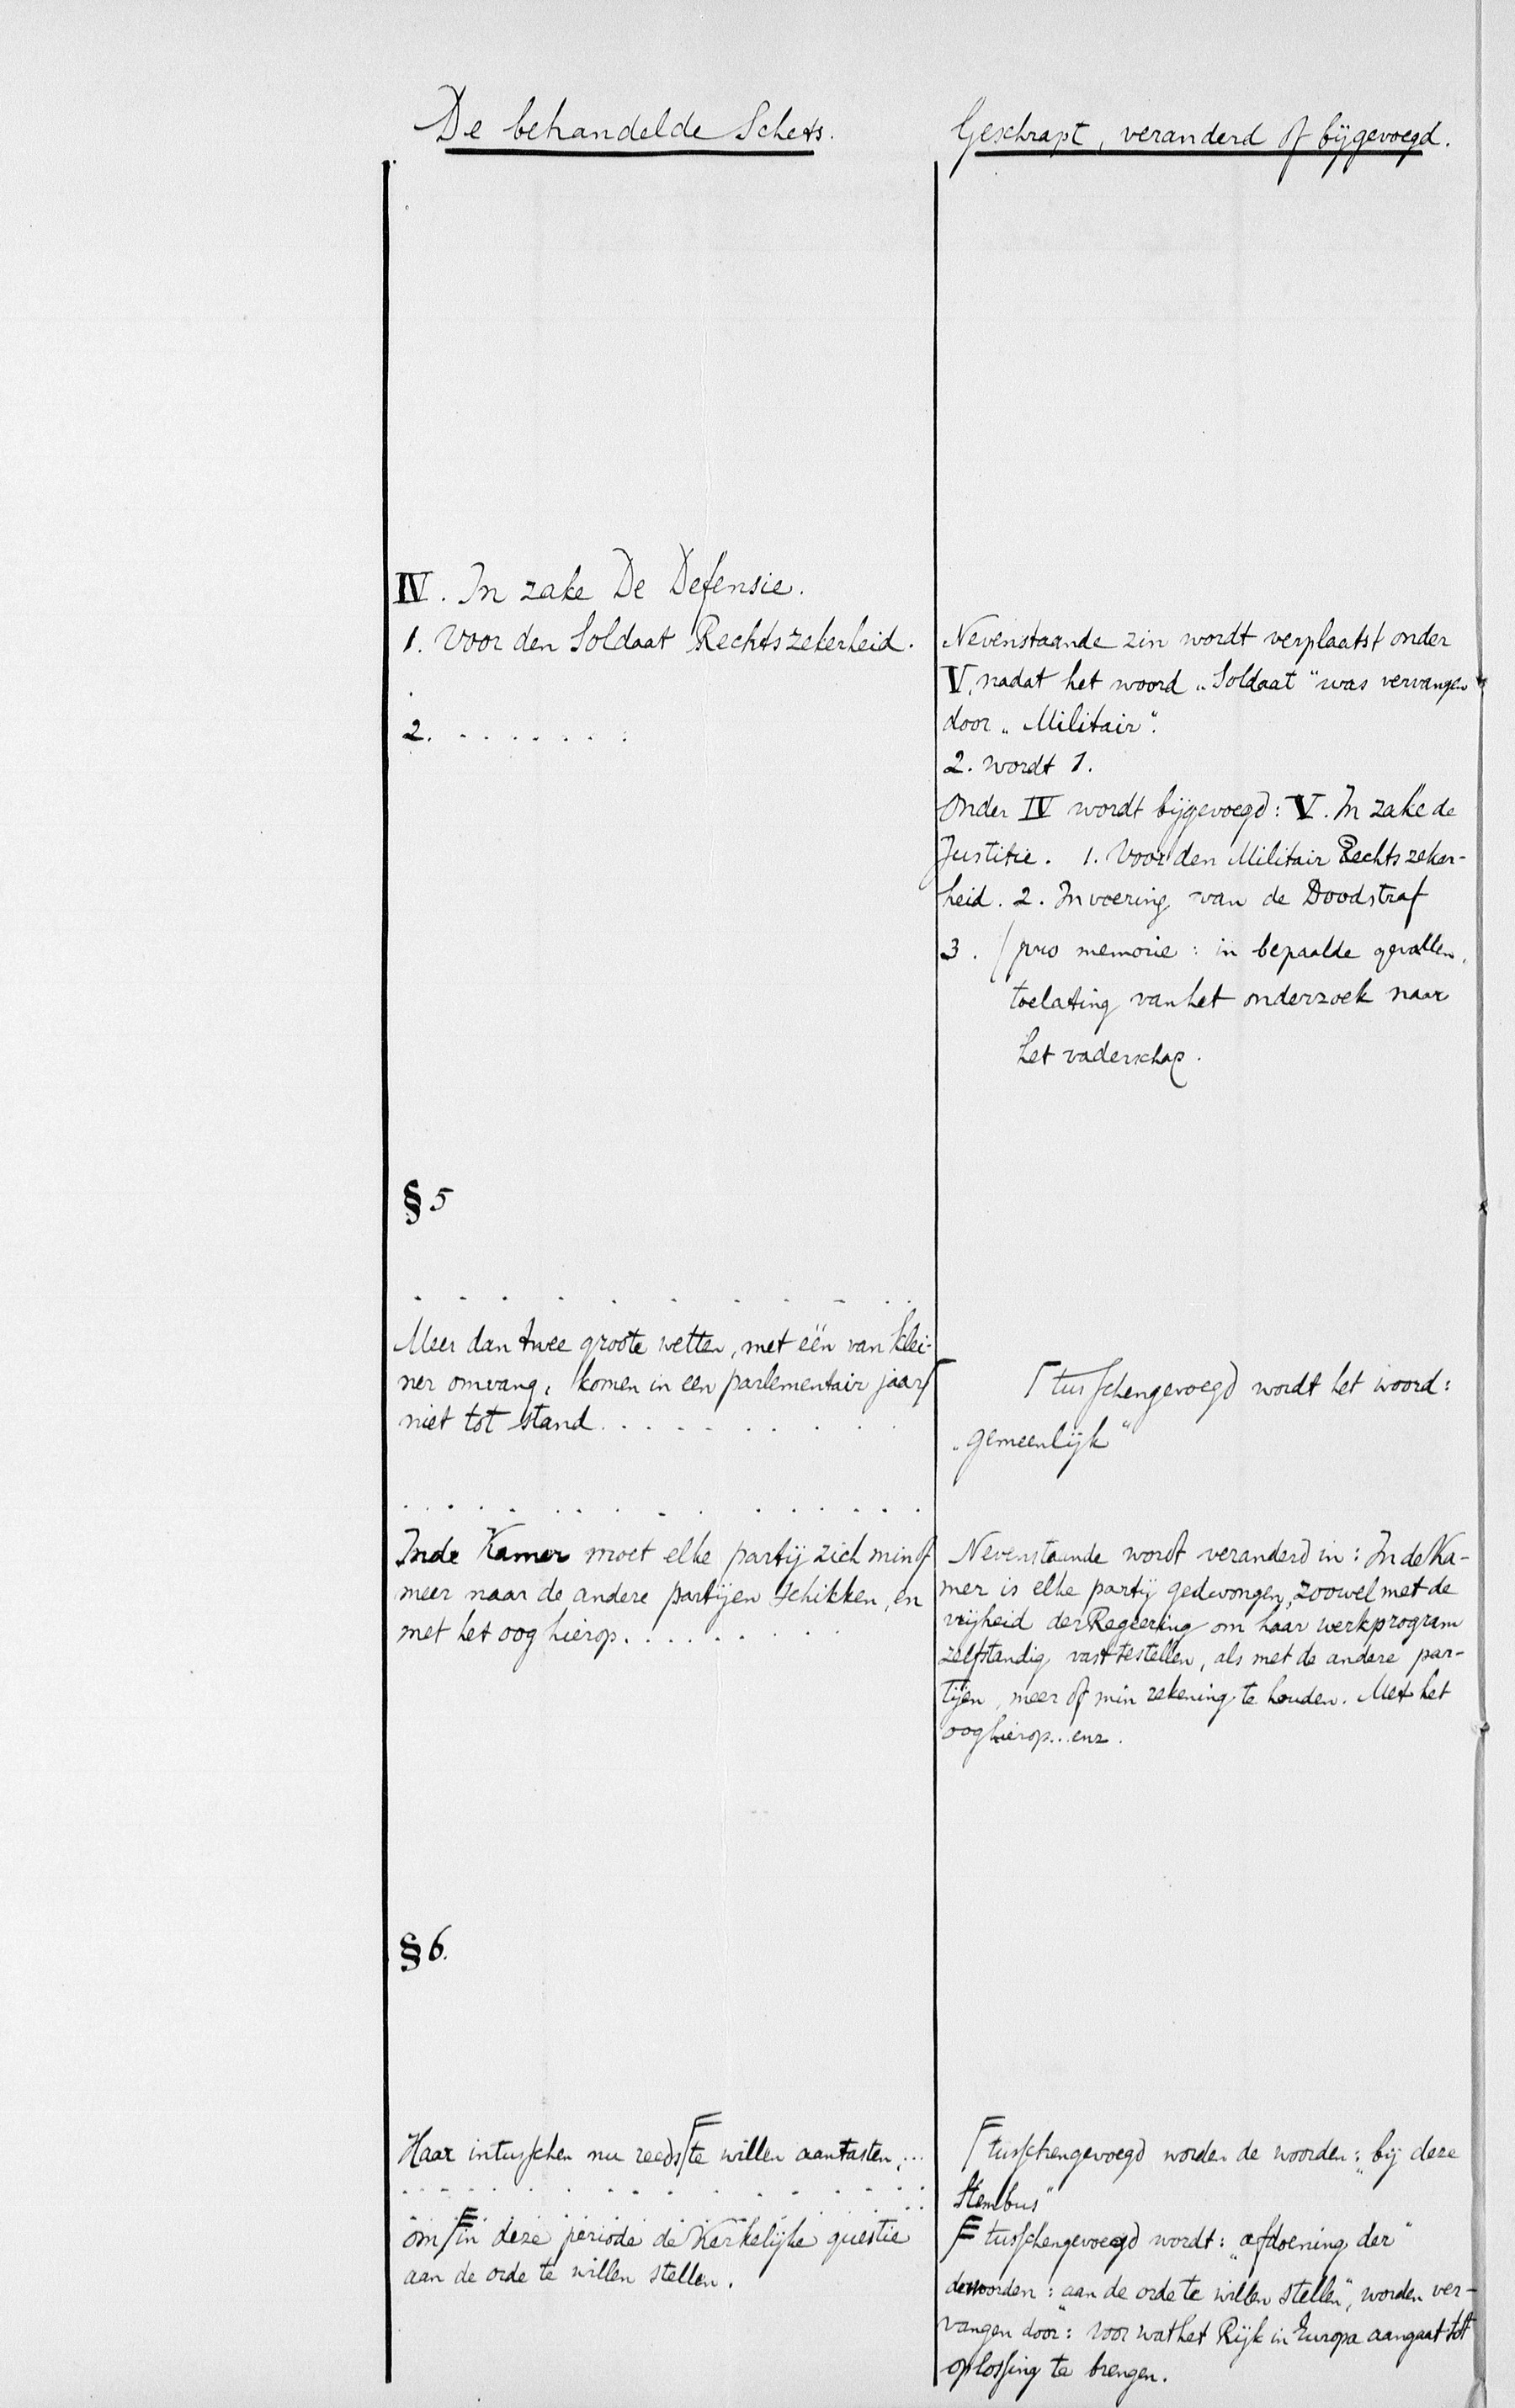 De behandelde Schets.
Geschrapt, veranderd of bijgevoegd.
IV. In zake De Defensie.
1. Voor den Soldaat Rechtszekerheid.
.
2. . . . . . . .
Nevenstaande zin wordt verplaatst onder
V, nadat het woord „Soldaat" was vervangen
door „Militair".
2. wordt 1.
Onder IV wordt bijgevoegd: V. In zake de
Justitie. 1. Voor den Militair Rechtszeker-
heid. 2. Invoering van de Doodstraf
3. (pro memorie: in bepaalde gevallen,
toelating van het onderzoek naar
het vaderschap.
§ 5
. . . . . . . . . . .
Meer dan twee groote wetten, met één van klei-
ner omvang, komen in een parlementair jaar ⌈
niet tot stand. . . . . . . . .
⌈ tusschengevoegd wordt het woord:
„gemeenlijk"
. . . . . . . . . . . . .
In de Kamer moet elke partij zich min of
meer naar de andere partijen schikken, en
met het oog hierop. . . . . . . . .
Nevenstaande wordt veranderd in: In de Ka-
mer is elke partij gedwongen, zoowel met de
vrijheid der Regeering om haar werkprogram
zelfstandig vast te stellen, als met de andere par-
tijen, meer of min rekening te houden. Met het
oog hierop...enz.
§ 6.
Haar intusschen nu reeds ⌈ te willen aantasten, ...
. . . . . . . . . . . . . .
om F in deze periode de Kerkelijke questie
aan de orde te willen stellen.
⌈ tusschengevoegd worden de woorden: „bij deze
Stembus"
F tusschengevoegd wordt: „afdoening der"
de woorden: „aan de orde te willen stellen", worden ver-
vangen door: „voor wat het Rijk in Europa aangaat tot
oplossing te brengen.